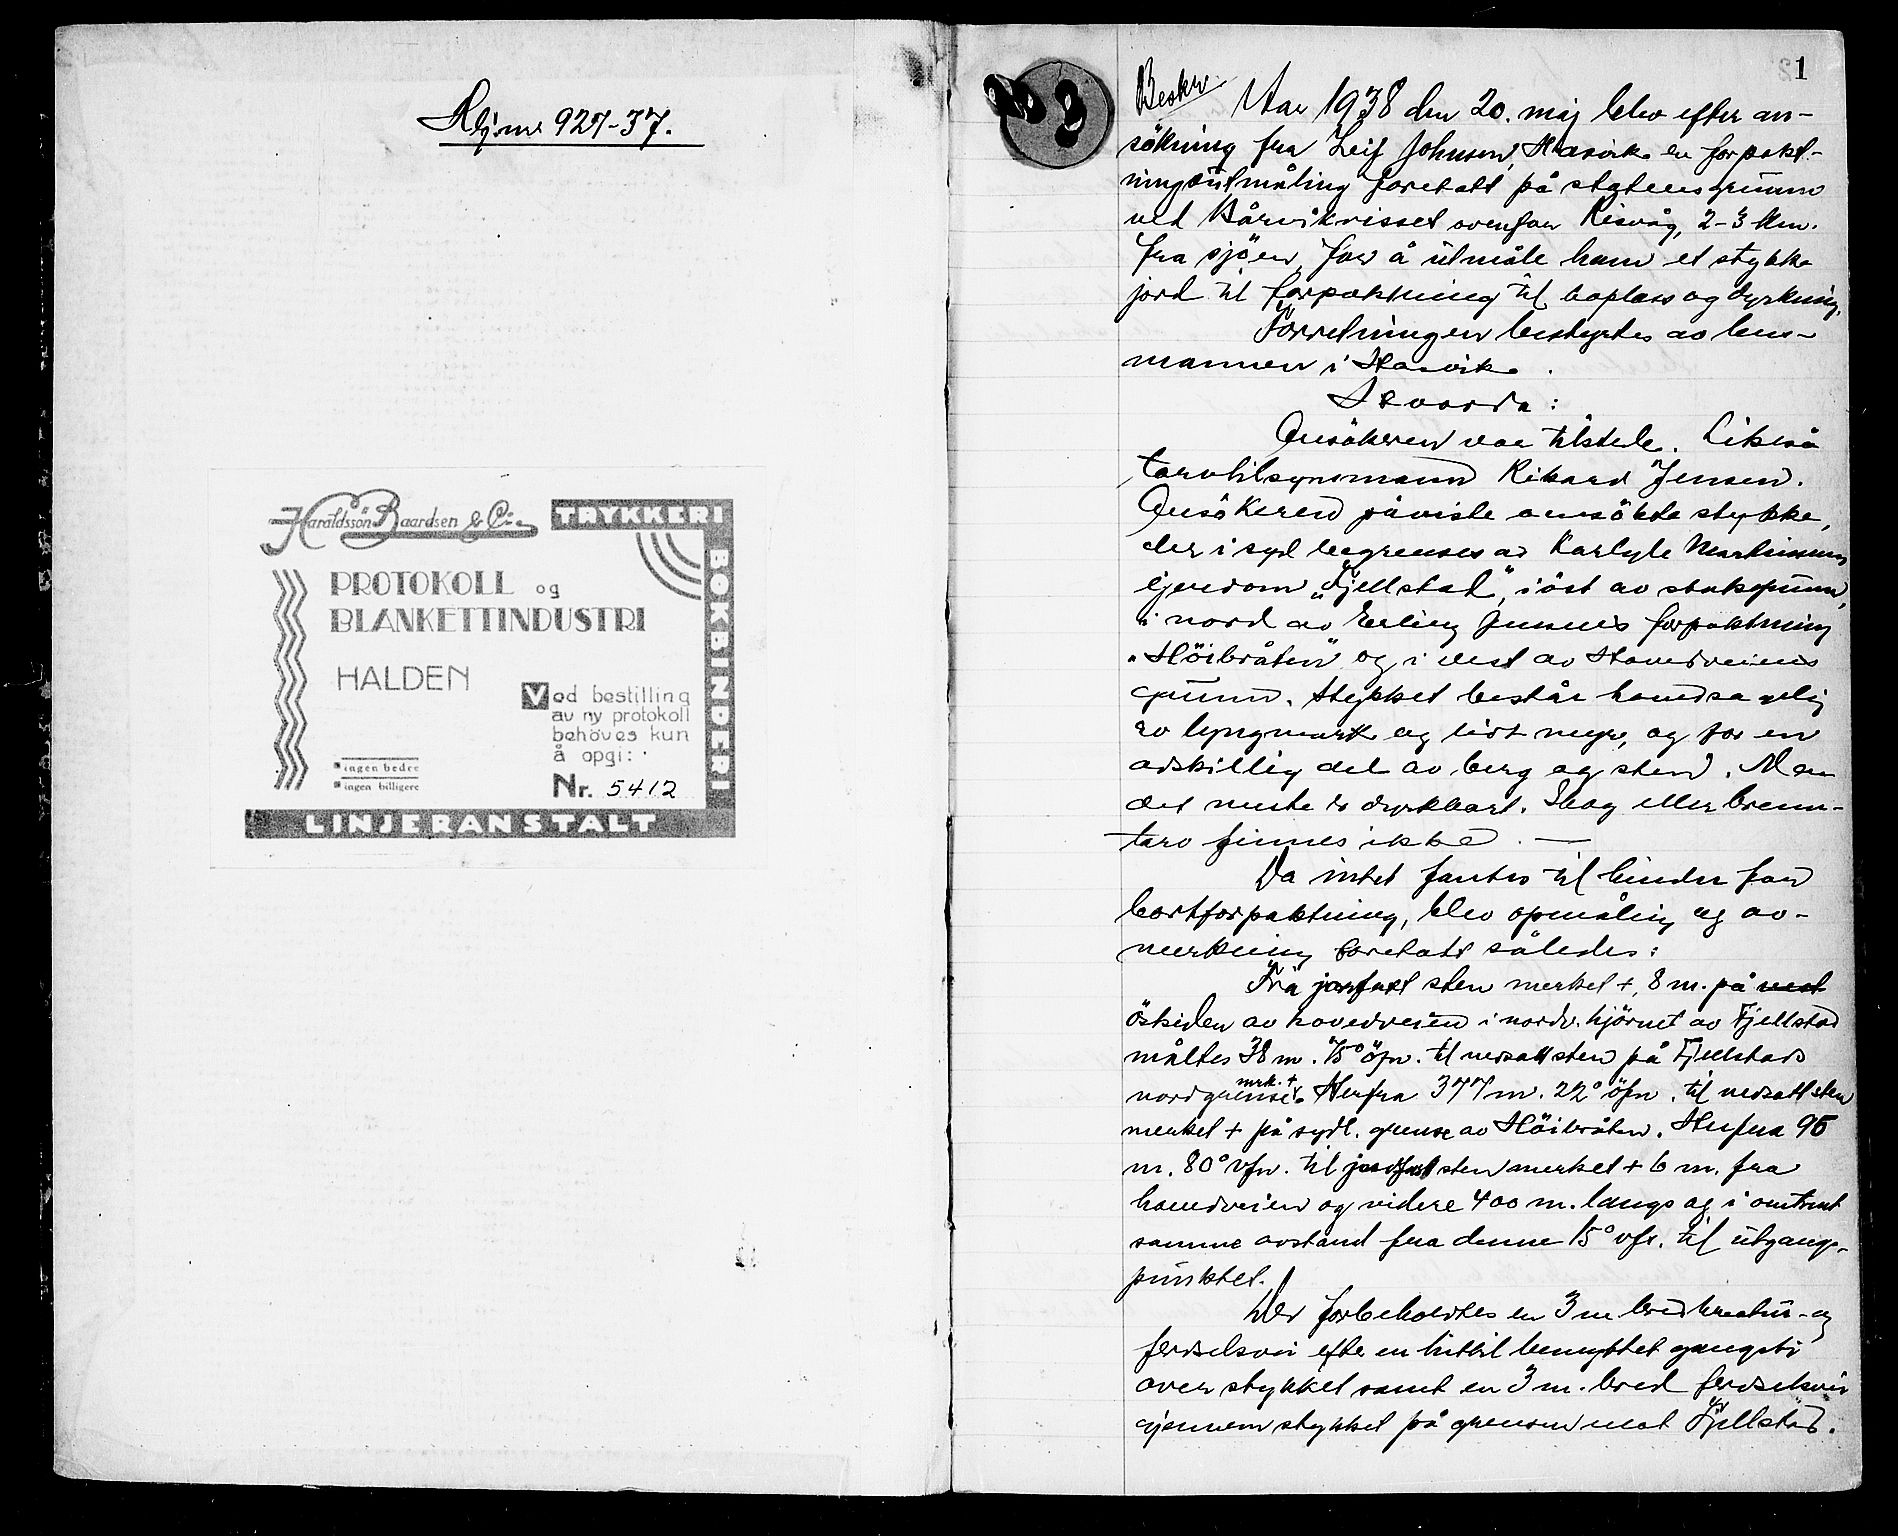 Rkj.nr. 927-37.
Haraldssön Baardsen & Co
TRYKKERI
BOKBINDERI
LINJERANSTALT
PROTOKOLL og
BLANKETTINDUSTRI
HALDEN
Ved bestilling
av ny protokoll
behöves kun
å opgi:
ingen bedre
ingen billigere
Nr. 5412
1
Beskr.
Aar 1938 den 20. maj blev efter an-
sökning fra Leif Johnsen, Hasvik en forpakt-
ningsutmåling foretatt på statens grunn
ved Bårvikrisset ovenfor Risvåg, 2-3 km.
fra sjöen, for å utmåle ham et stykke
jord til forpaktning til boplass og dyrkning.
Forretningen bestyrtes av lens-
mannen i Hasvik.
Ansökeren var tilstede. Likeså
torvtilsynsmann Rikard Jensen.
Ansökeren påviste ansökte stykke,
der i syd begrenses av Karlyle Martinsens
ejendom „Fjellstad”, i öst av statsgrunn,
i nord av Erling Jensens forpaktning
„Höibråten” og i vest av Hovedveiens
grunn. Stykket består hovedsagelig
av lyngmark og litt myr, og for en
adskillig del av berg og sten. Men
det meste er dyrkbart. Skog eller brenn-
torv finnes ikke. —
Da intet fantes til hinder for
bortforpaktning, blev opmåling og av-
merkning foretatt således:
Fra jordfast sten merket +, 8 m. på vest
östsiden av hovedveien i nordv. hjörnet av Fjellstad
måltes 38 m. 75° öfn. til nedsatt sten på Fjellstads
nordgrense mrk. +. Herfra 377 m. 22° öfn. til nedsatt sten
merket + på sydl. grense av Höibråten. Herfra 95
m. 80° vfn. til jordfast sten merket + 6 m. fra
hovedveien og videre 400 m. langs og i omtrent
samme avstand fra denne 15° vfs. til utgangs-
punktet.
Der forbeholdtes en 3 m bred kreatur- og
ferdselsvei efter en hittil benyttet gangsti
over stykket samt en 3 m. bred ferdselsvei
gjennem stykket på grensen mot Fjellstad.